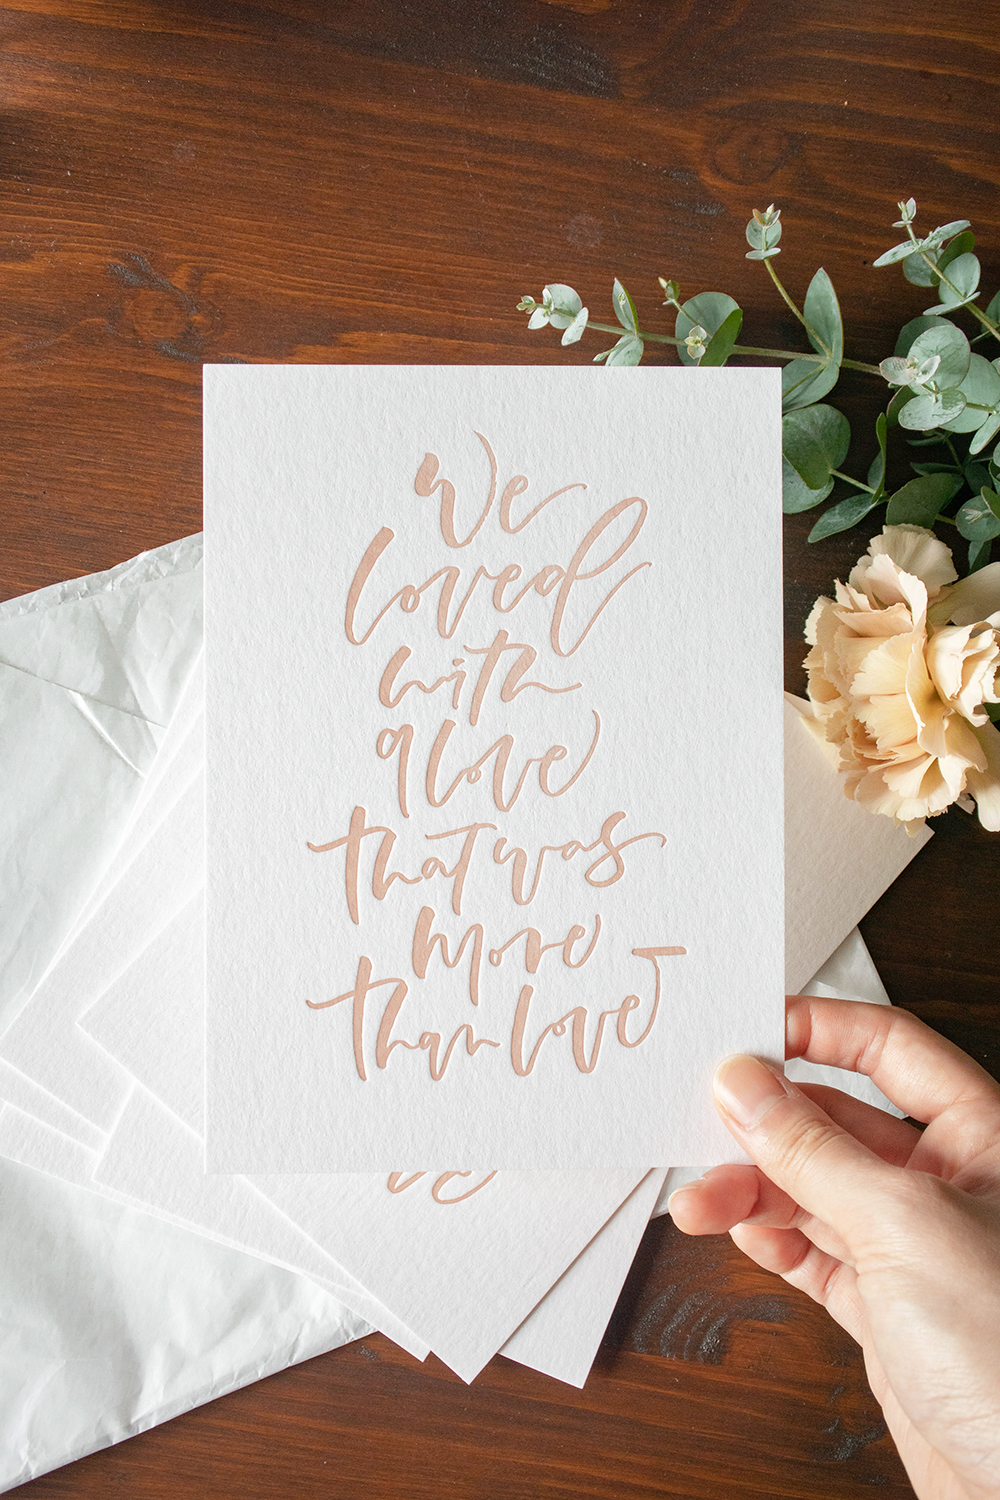 We
loved
with
a love
that was
more
than love